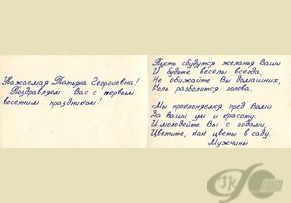 Уважаемая Татьяна Георгиевна!
Поздравляем Вас с первым
весенним праздником!
Пусть сбудутся желанья Ваши
И будьте веселы всегда,
Не обижайте Вы домашних,
Коль разболится голова.
Мы преклоняемся пред Вами
За Ваши ум и красоту.
И молодейте Вы с годами,
Цветите, как цветы в саду.
Мужчины